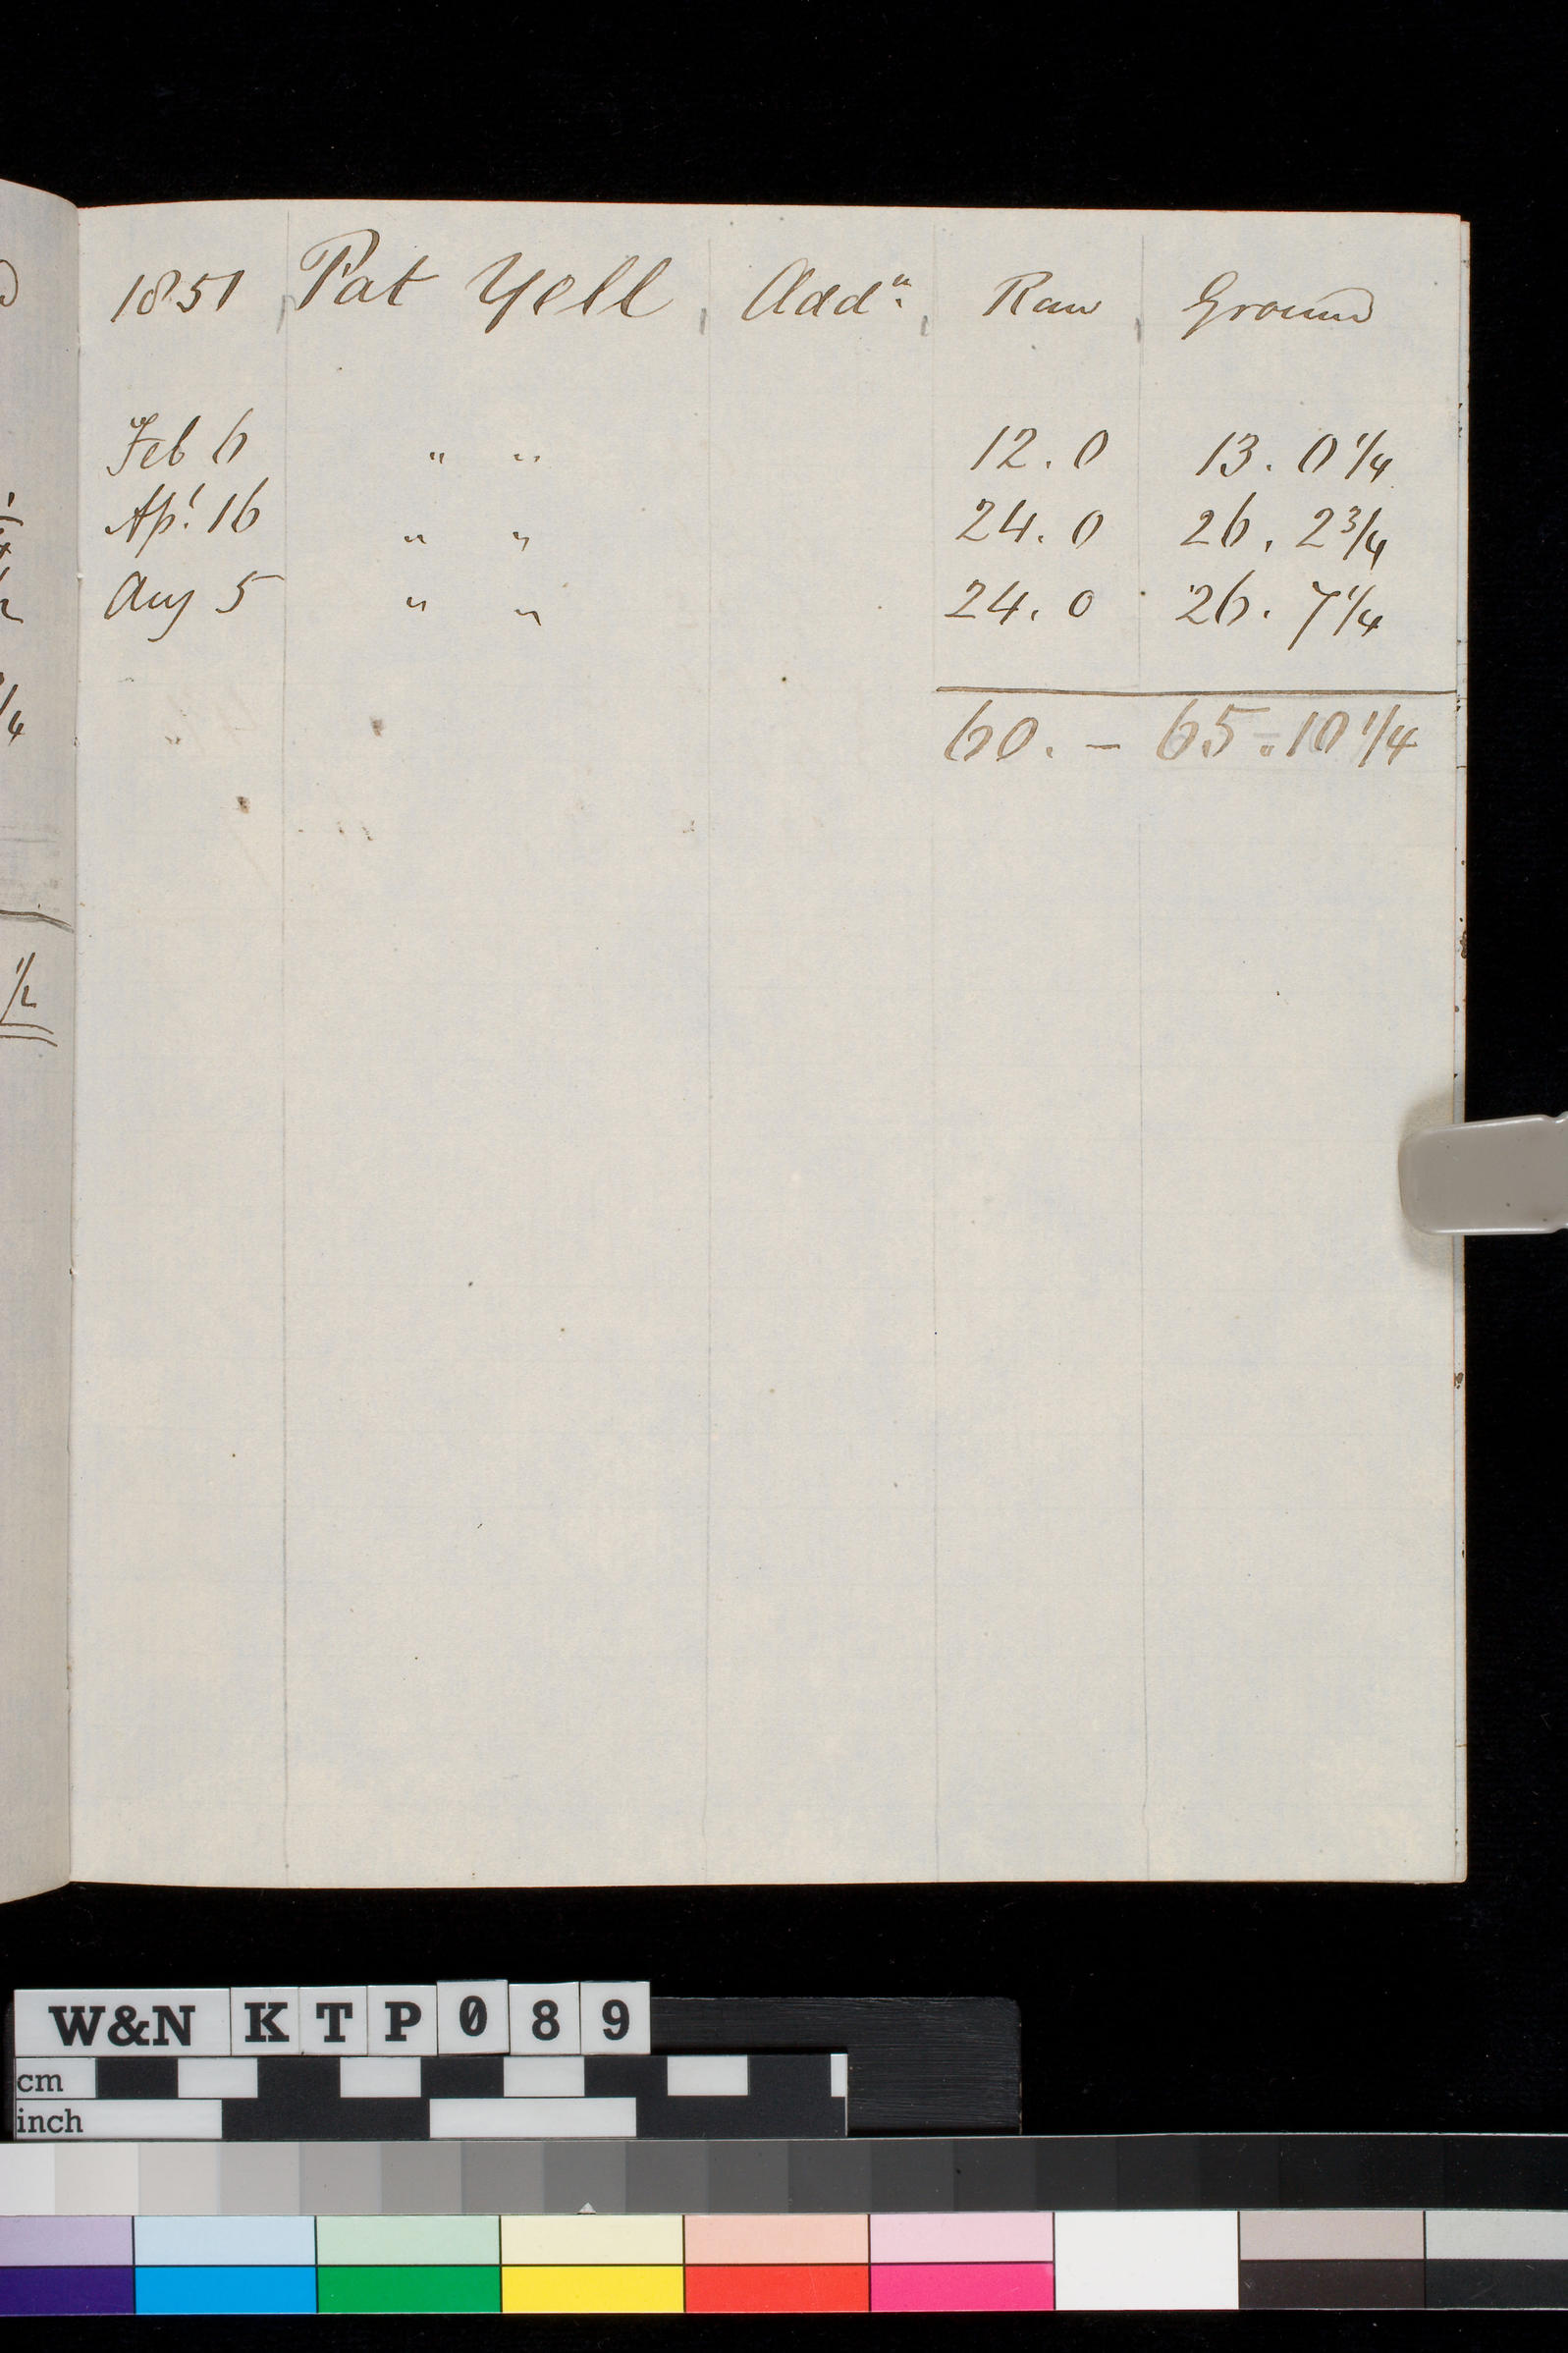 1851 Pat Yell Addⁿ. Raw Ground
Feb 6 " " 12.0 13.0 1/4
Apˡ. 16 " " 24.0 26.2 3/4
Aug 5 " " 24.0 26.7 1/4
60.– 65.10 1/4
1/4
1/2
W&N KTP089
cm
inch